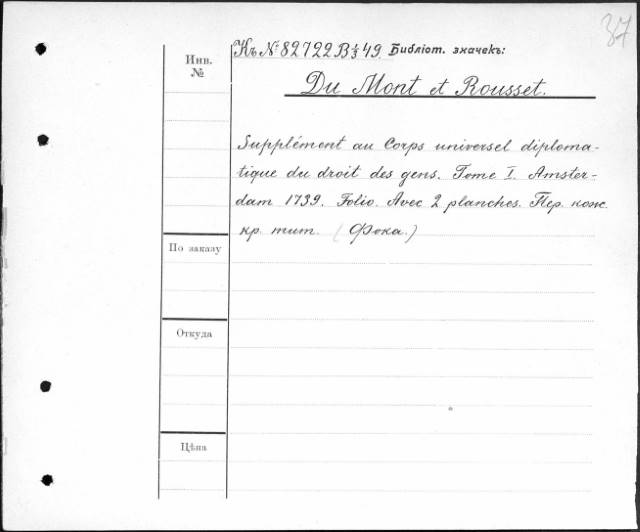 37
Къ № 82722 B 1/3 49. Библіот. значекъ:
Инв.
№
Du Mont et Rousset.
Supplément au Corps universel diploma-
tique du droit des gens. Tome I. Amster-
dam 1739. Folio. Avec 2 planches. Пер. кож.
кр. тит. (Фока.)
По заказу
Откуда
Цѣна